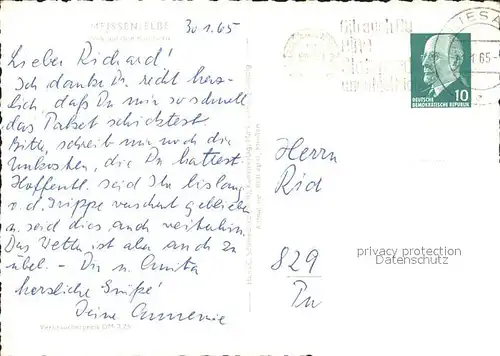 MEISSEN, ELBE
30.1.65
Lieber Richard!
Ich danke Dir recht herz-
lich, daß Du mir so schnell
das Paket schicktest
Bitte, schreib mir noch die
Unkosten, die Du hattest.
Hoffentl. seid Ihr bislang
v. d. Grippe verschont geblieben
u. seid dies auch weiterhin.
Das Wetter ist aber auch zu
übel. – Du u. Anita
herzliche Grüße!
Deine Annemie
Verbraucherpreis DM 0,25
RIESA
1.65
10
DEUTSCHE
DEMOKRATISCHE REPUBLIK
Herrn
829
privacy protection
Datenschutz